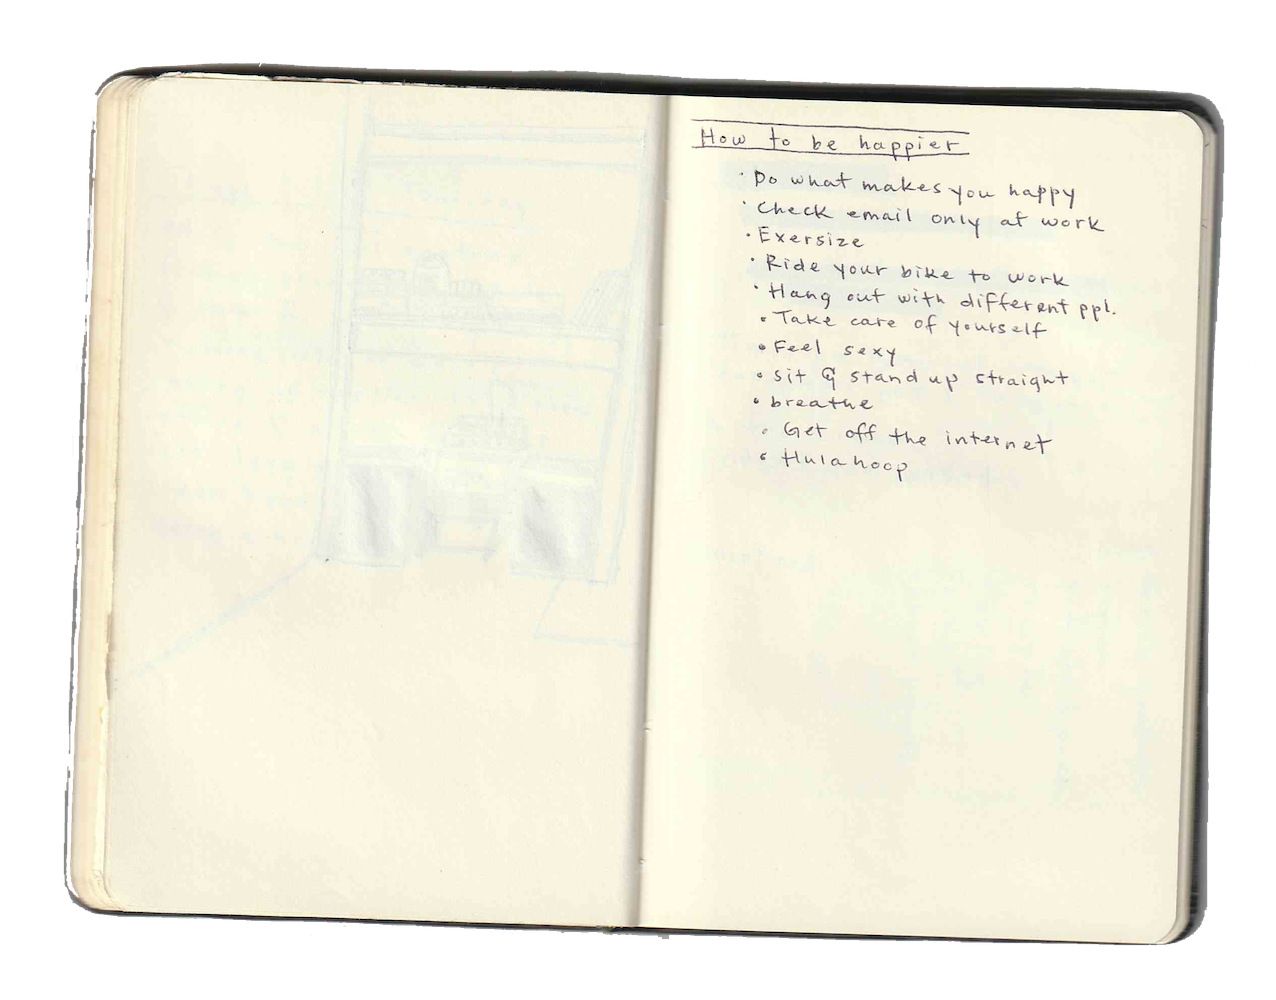 How to be happier
· Do what makes you happy
· Check email only at work
· Exersize
· Ride your bike to work
· Hang out with different ppl.
· Take care of yourself
· Feel sexy
· sit & stand up straight
· breathe
· Get off the internet
· Hulahoop